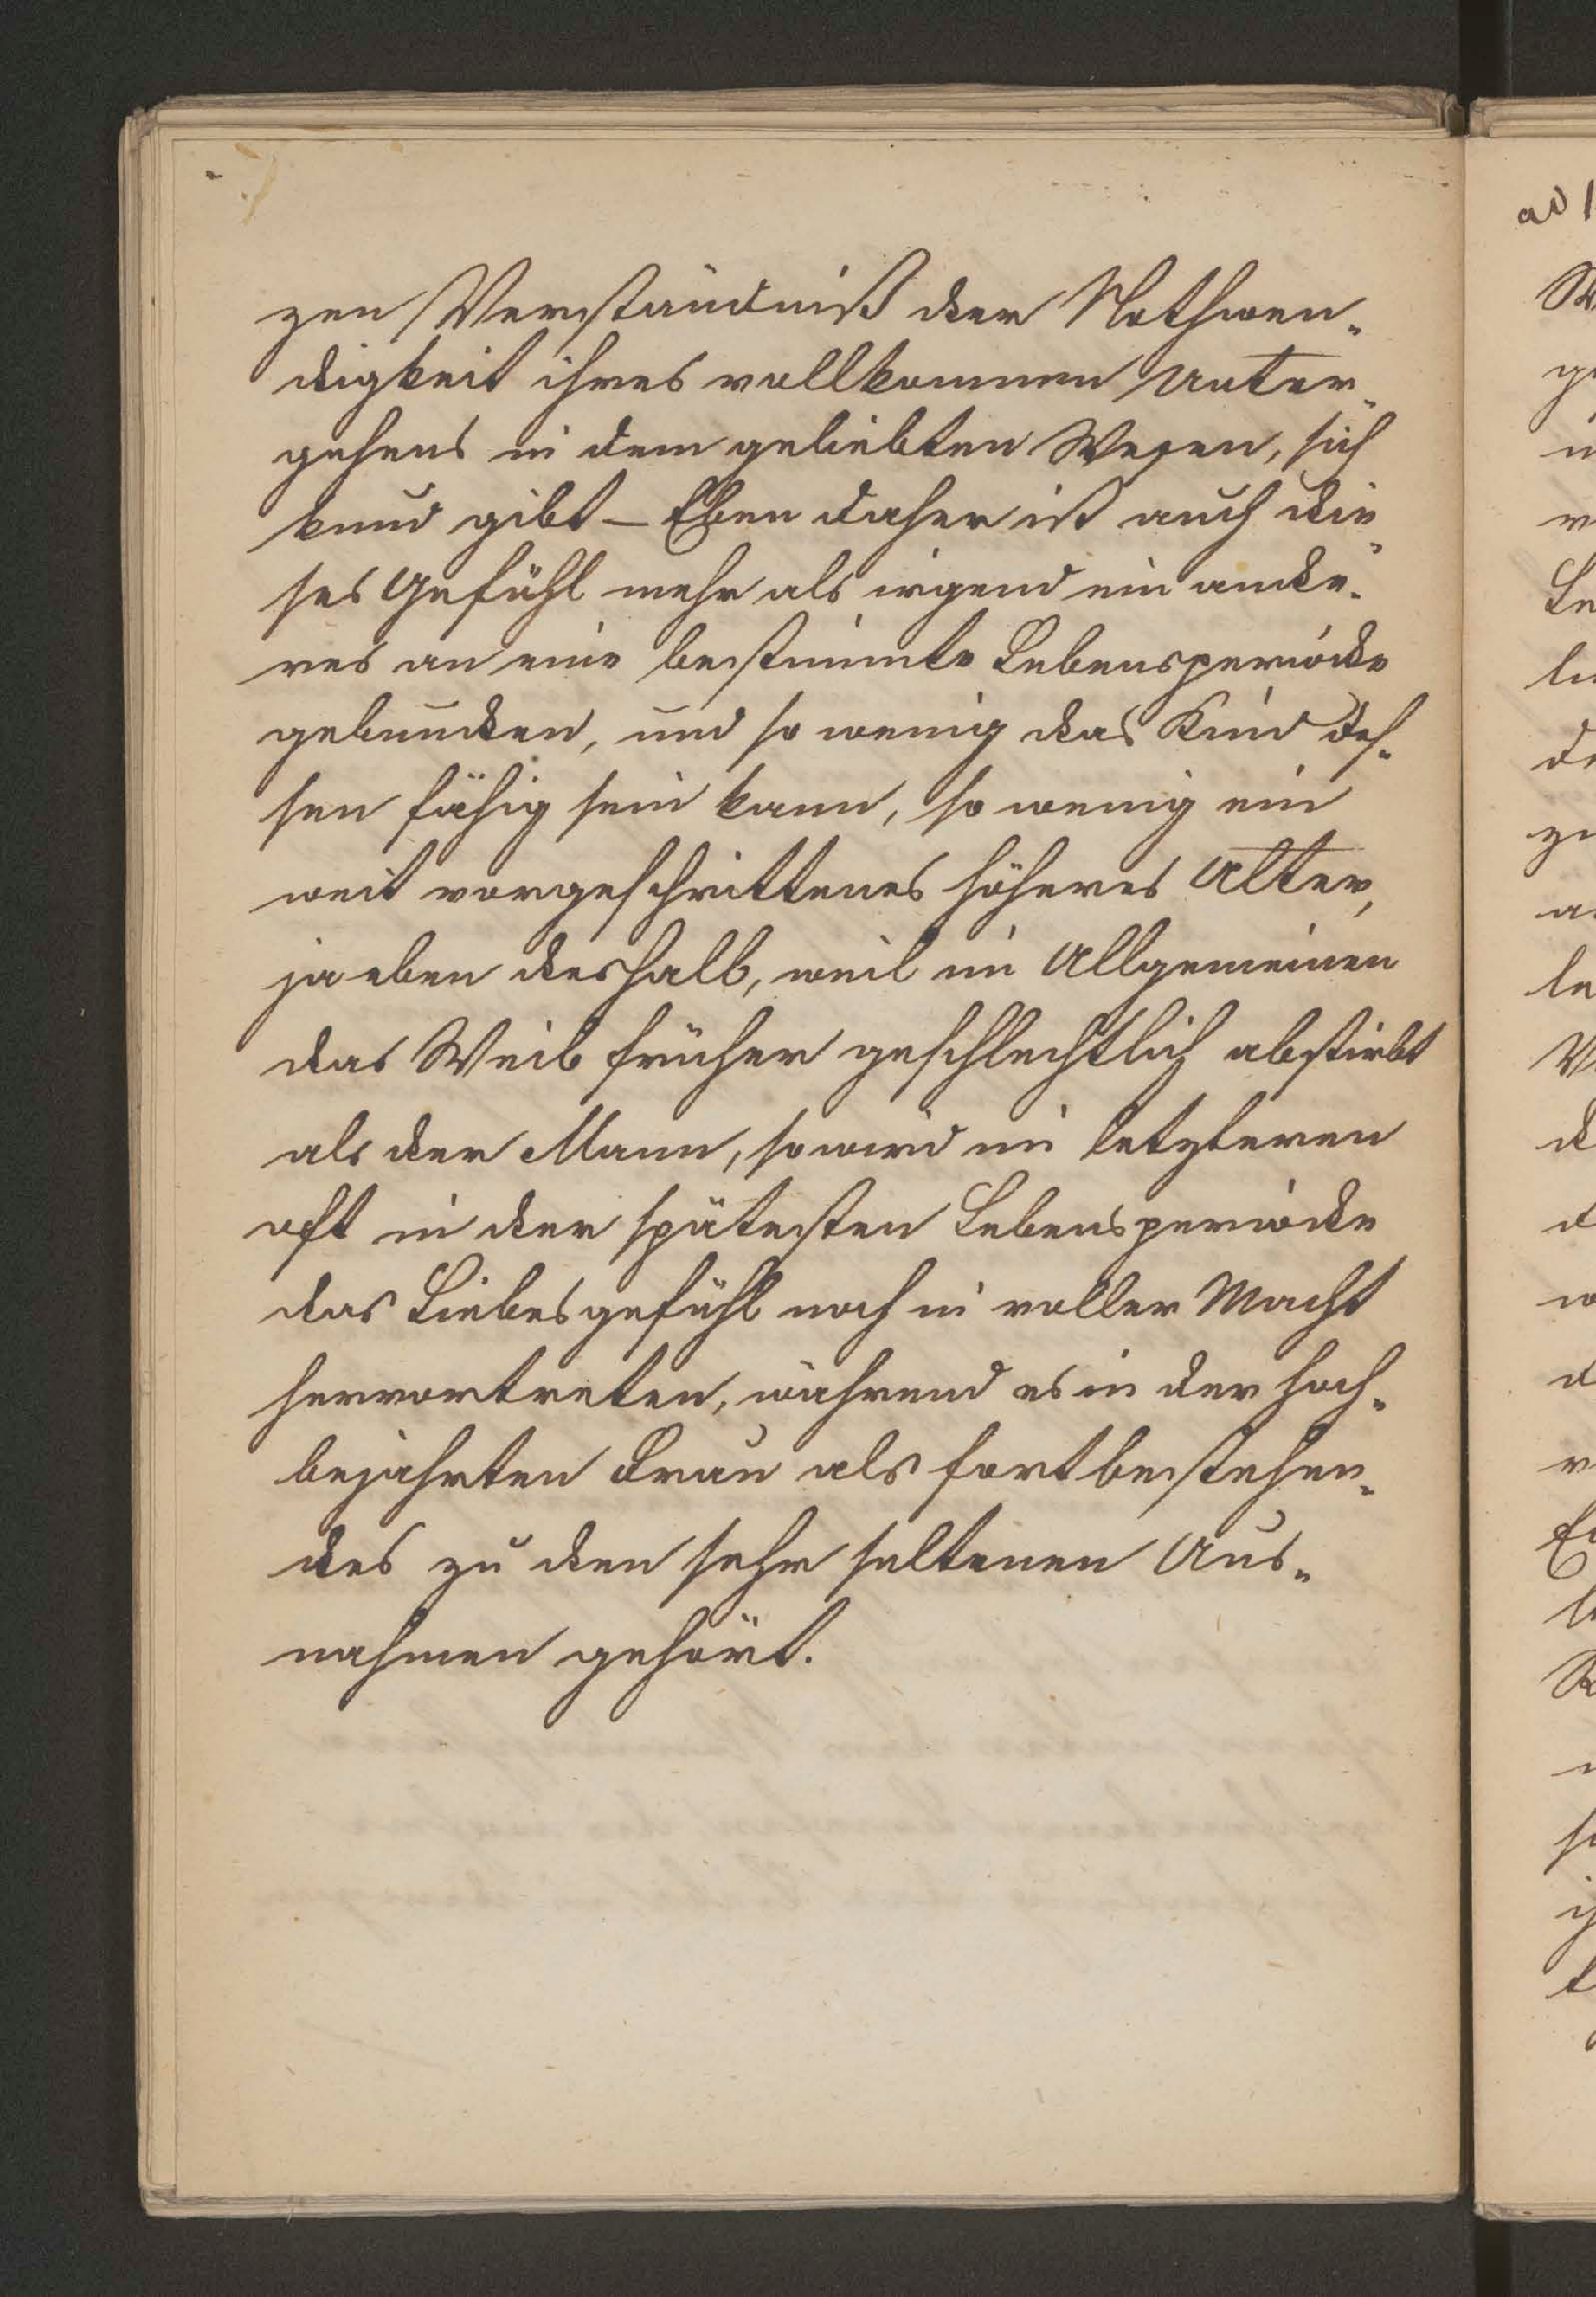 zen Verständniß der Nothwen-
digkeit ihres vollkommnen Unter-
gehens in dem geliebten Wesen, sich
kund gibt – Eben daher ist auch die-
ses Gefühl mehr als irgend ein ande-
res an eine bestimmte Lebensperiode
gebunden, und so wenig das Kind des-
sen fähig sein kann, so wenig ein
weit vorgeschrittenes höheres Alter,
ja eben deshalb, weil im Allgemeinen
das Weib früher geschlechtlich abstirbt
als der Mann, so wird im letzteren
oft in der spätesten Lebensperiode
das Liebesgefühl noch in voller Macht
hervortreten, während es in der hoch-
bejahrten Frau als fortbestehen-
des zu den sehr seltenen Aus-
nahmen gehört.
ad 1